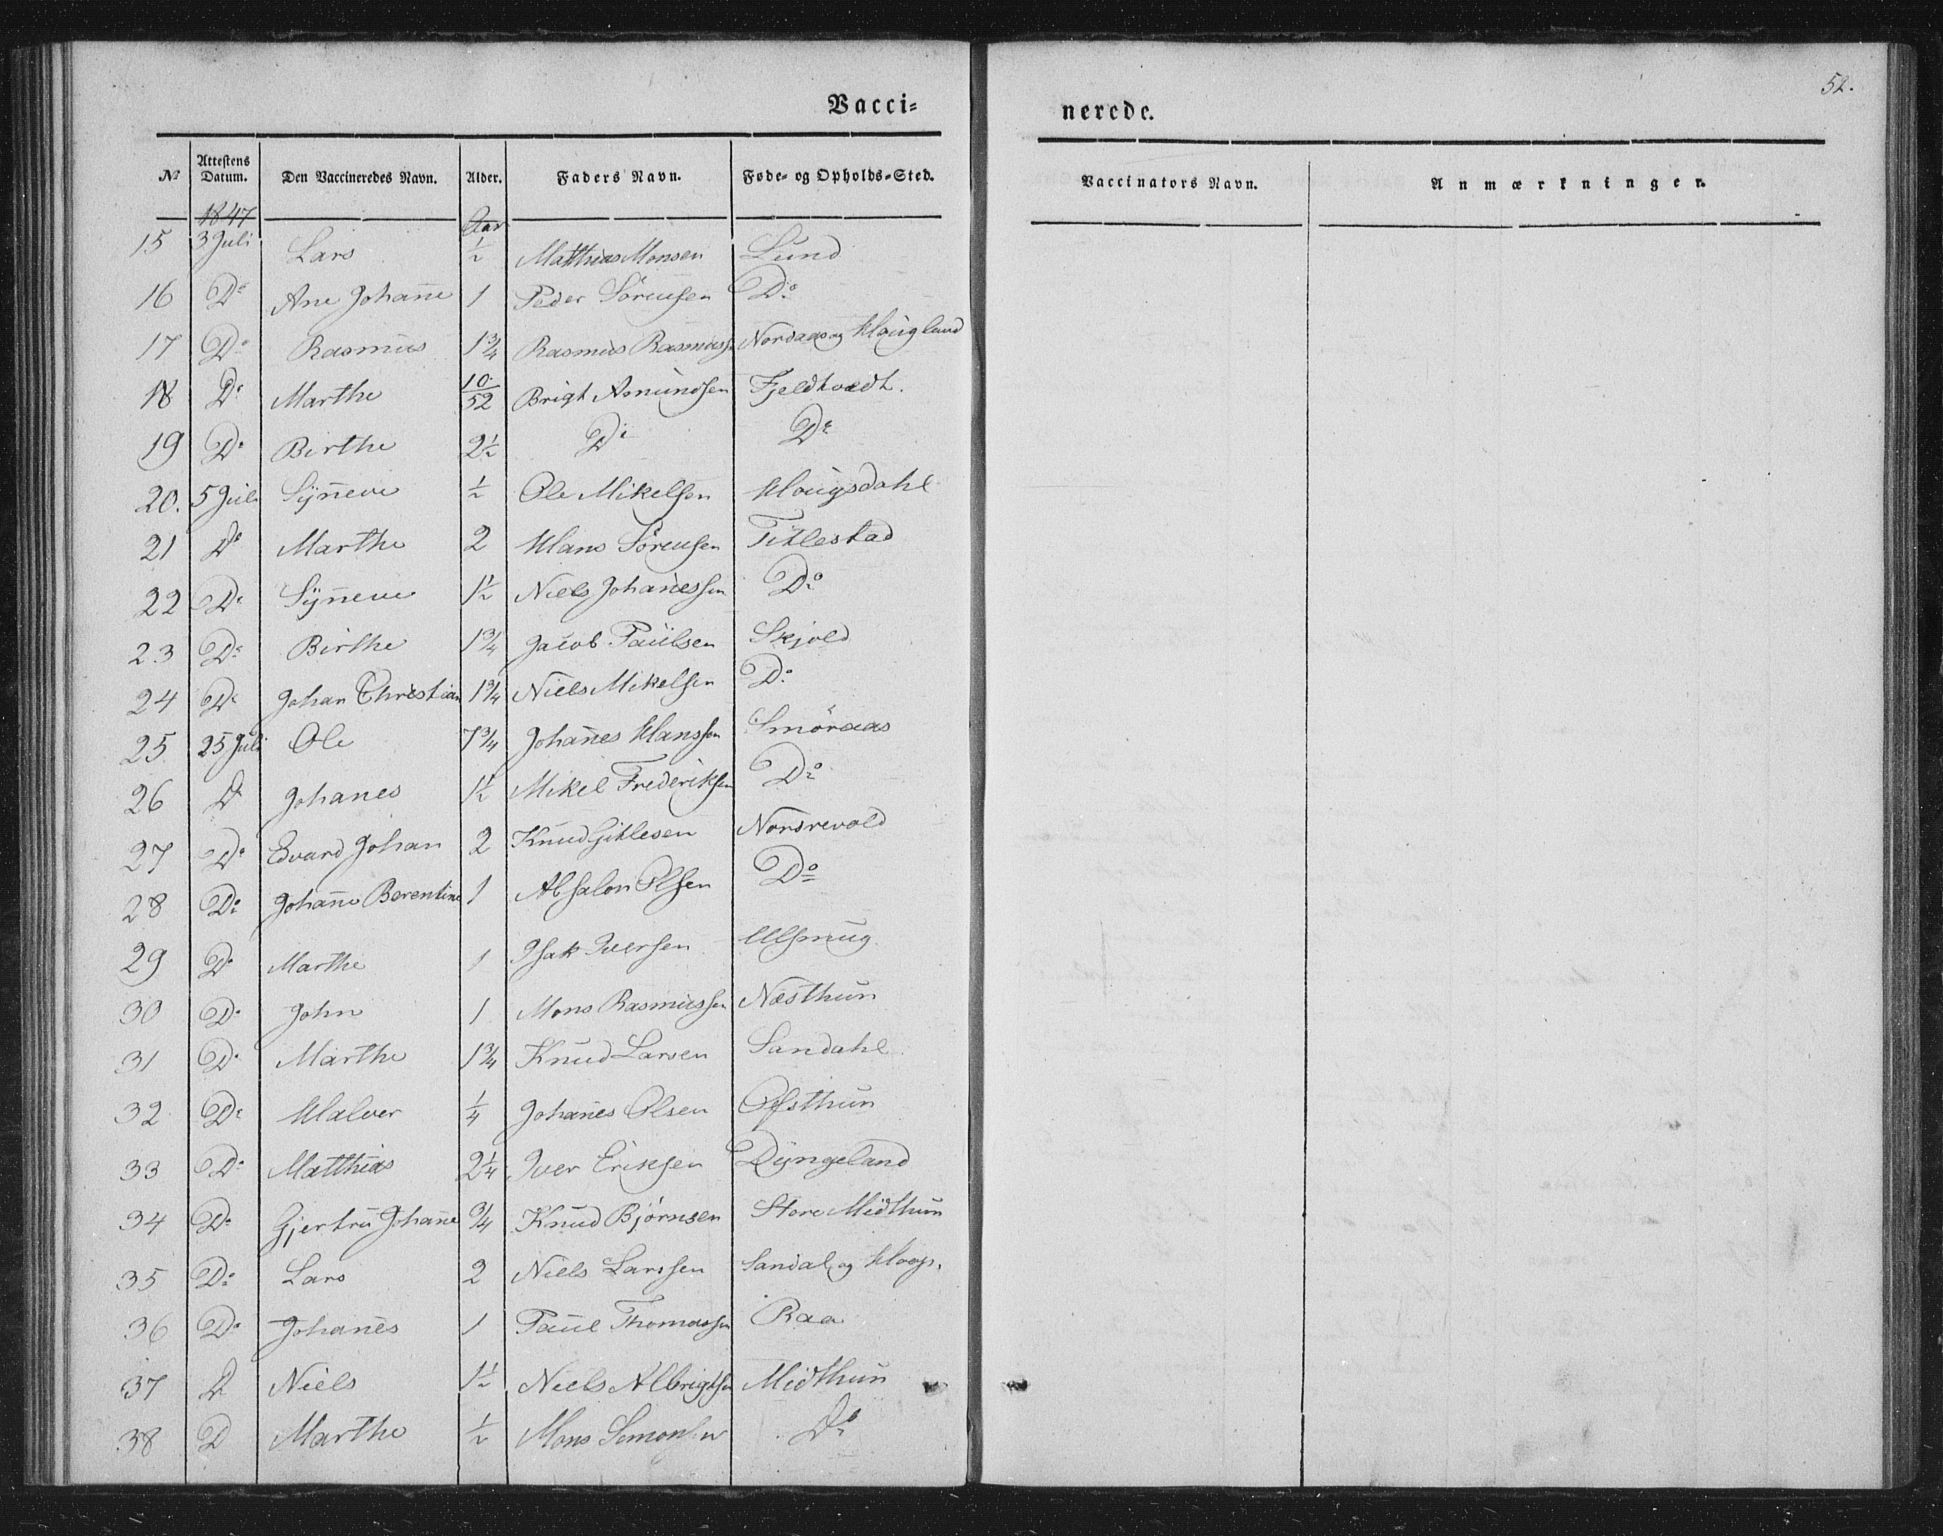 Vacci-
nerede.
52.
№ Attestens Datum. Den Vaccineredes Navn. Alder. Faders Navn. Føde- og Opholds-Sted. Vaccinators Navn. Anmærkninger.
1847 Aar
15 3 Juli Lars ½ Matthias Monsen Lund
16 Do Ane Johan̄e 1 Peder Sörensen Do
17 Do Rasmus 1¾ Rasmus Rasmuss Nordaas og Hougland
18 Do Marthe 10/52 Brigt Asmundsen Fjeldtvedt.
19 Do Birthe 2½ Do Do
20. 5 Juli Syn̄eve ½ Ole Mikelsen Hougsdahl
21 Do Marthe 2 Hans Sörensen Titlestad
22 Do Syn̄eve 1½ Niels Johan̄essen Do
23 Do Birthe 1¾ Jacob Paulsen Skjold
24 Do Johan Christian 1¾ Niels Mikelsen Do
25. 25 Juli Ole 7¾ Johan̄es Hanssen Smöraas
26 D Johanes 1½ Mikel Frederiksen Do
27 Do Edvard Johan 2 Knud Gitlesen Nordrevold
28 Do Johan̄e Berentine 1 Absalon Olsen Do
29 Do Marthe 1 Isak Iversen
30 Do John 1 Mons Rasmussen Næsthun
31 Do Marthe 1¾ Knud Larsen Sandahl
32 Do Halver ¼ Johan̄es Olsen Øfsthun
33 Do Matthias 2¼ Iver Eriksen Dyngeland
34 Do Gjertru Johan̄e ¾ Knud Bjørnsen Store Midthun
35 Do Lars 2 Niels Larssen Sandal og
36 Do Johan̄es 1 Paul Thomassen Raa
37 D Niels 1½ Niels Albrigtsen Midthun
38 D Marthe ½ Mons Simonsen Do